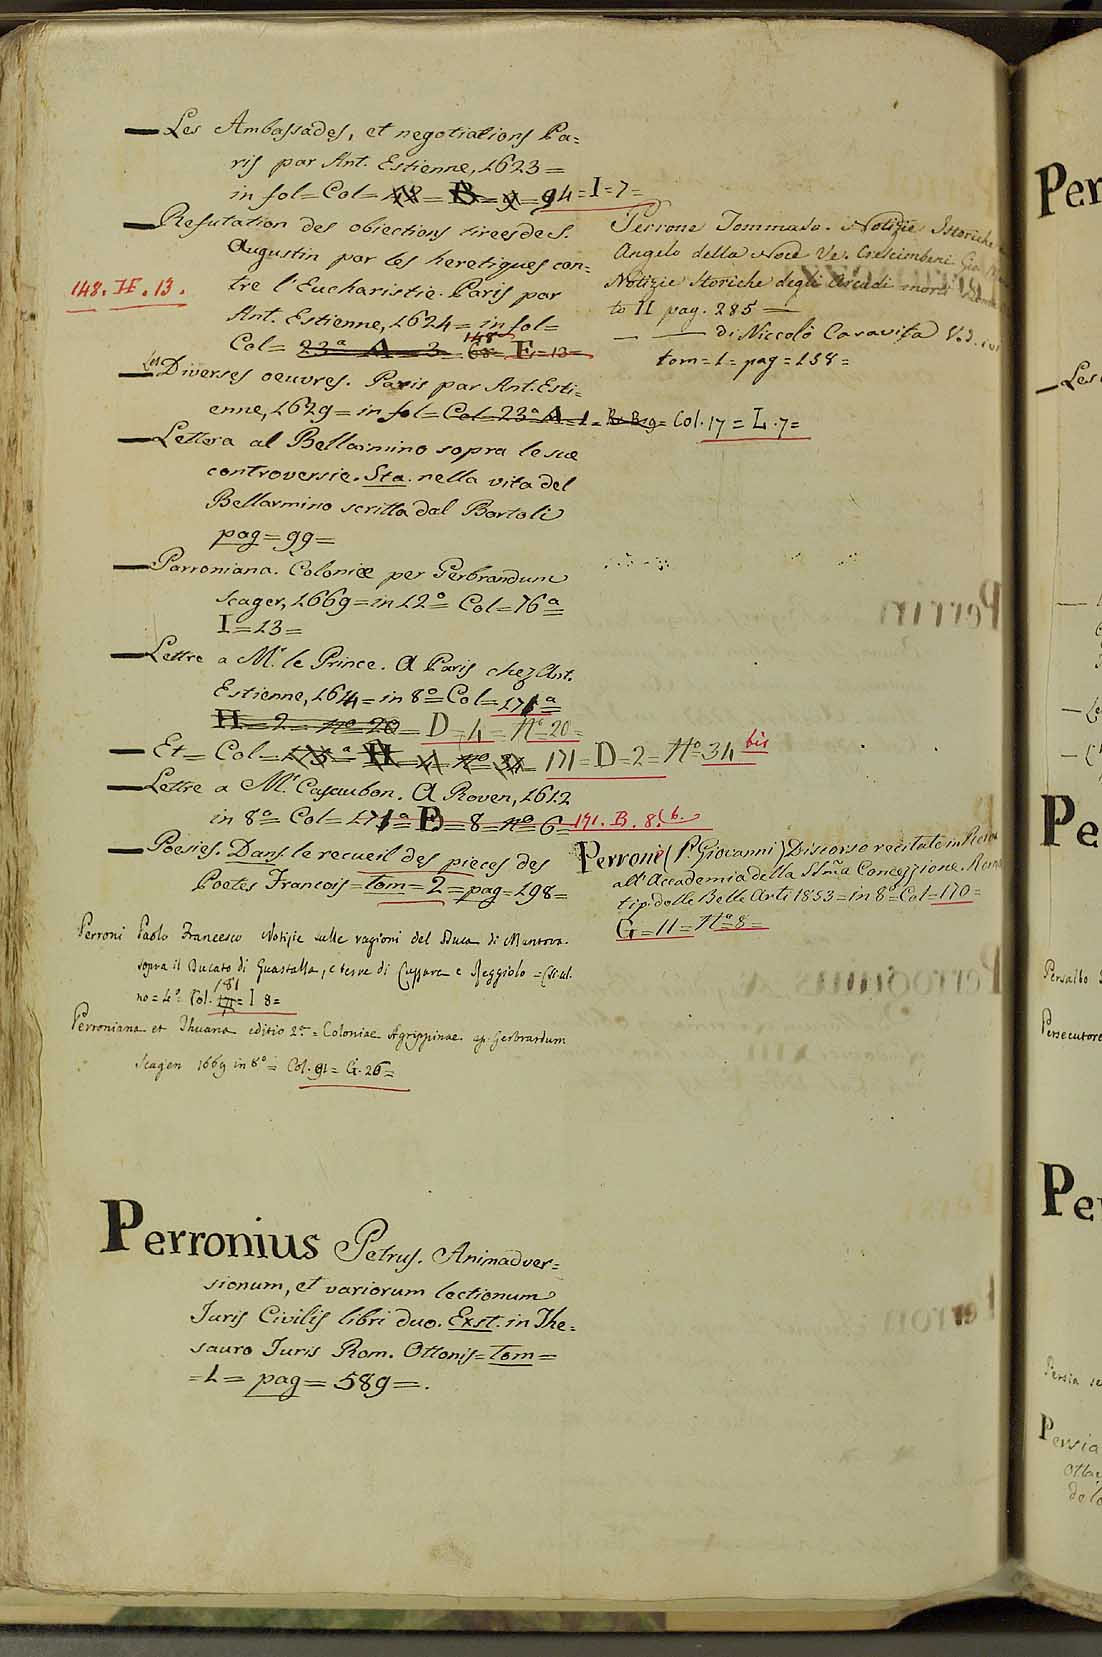 — Les Ambassades, et negotiations Pa=
ris par Ant. Estienne, 1623 =
in fol = Col = 94 = I = 7 =
— Refutation des obiections tirees de S.
Augustin par les heretiques con=
tre l'Eucharistie. Paris par
148. II. 13.
Ant. Estienne, 1624 = in fol =
Col = 23ª A = 3 = 68 148 E = 13 =
— Les Diverses oeuvres. Paris par Ant. Esti=
enne, 1629 = in fol = Col = 23ª A = 1 = Col. 17 = L. 7 =
— Lettera al Bellarmino sopra le sue
controversie. Sta. nella vita del
Bellarmino scritta dal Bartoli
pag = 99 =
— Parroniana. Coloniæ per Gerbrandum
Scager, 1669 = in 12º = Col = 76ª =
I = 13 =
— Lettre a Mr. le Prince. A Paris chez Ant.
Estienne, 1614 = in 8º = Col = 171ª =
H = 2 = Nº 20 = D = 4 = Nº 20 =
— Et = Col = 171 = D = 2 = Nº 34 bis
— Lettre a Mr. Casaubon. A Roven, 1612
in 8º = Col = 171ª = = 8 = Nº 6 = 191. B. 8. 6.
— Poesies. Dans le recueil des pieces des
Poetes Francois = tom = 2 = pag = 198 =
Perroni Paolo Francesco Notizie sulle ragioni del Duca di Mantova
sopra il Ducato di Guastalla, e terre di Luzzara e Reggiolo =
no = 4º. Col. 181 = I 8 =
Perroniana et Thuana editio 2ª = Coloniae Agrippinae ap. Gerbrardum
Scagen 1669 in 8º = Col. 91 = G. 26 =
Perronius Petrus. Animadver=
sionum, et variorum lectionum
Juris Civilis libri duo. Exst. in The=
sauro Juris Rom. Ottonis = Tom =
= 1 = pag = 589 = .
Perrone Tommaso. Notizie Istoriche
Angelo della Noce Ve. Crescimbeni
Notizie Storiche degli Arcadi morti
to II pag. 285 =
— — di Niccolò Caravita Ved.
tom = 1 = pag = 158 =
Perrone (P. Giovanni) Discorso recitato in
all'Accademia della SSma Concezzione.
tip. delle Belle Arti 1853 = in 8º = Col = 170 =
G = 11 = Nº 8 =
Per
— Les
Pe
Persalbo
Persecutore
Pe
Persia
Persia